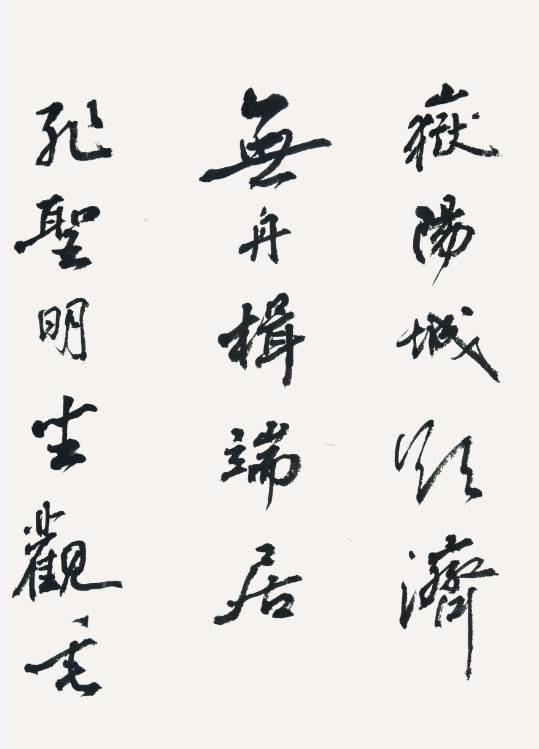 嶽陽城欲濟
無舟楫端居
恥聖明坐觀垂